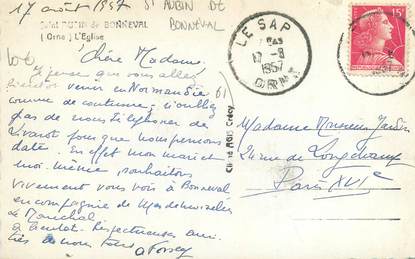 17 août 1957
ST AUBIN DE BONNEVAL
Saint AUBIN de BONNEVAL
(Orne) L'Eglise
LE SAP
17 -8
1957
ORNE
15F
Chère Madame
Je pense que vous allez
venir en Normandie
comme de coutume, n'oubliez
pas de nous téléphoner de
Livarot pour que nous prenions
date. En effet mon mari et
moi-même souhaitons
vivement vous voir à Bonneval
en compagnie de Mesdemoiselles
Maréchal
à bientôt. Respectueuses ami-
tiés de nous tous
Cliché AGIS Crécy
Madame
24 rue de Longchamp
Paris XVIe